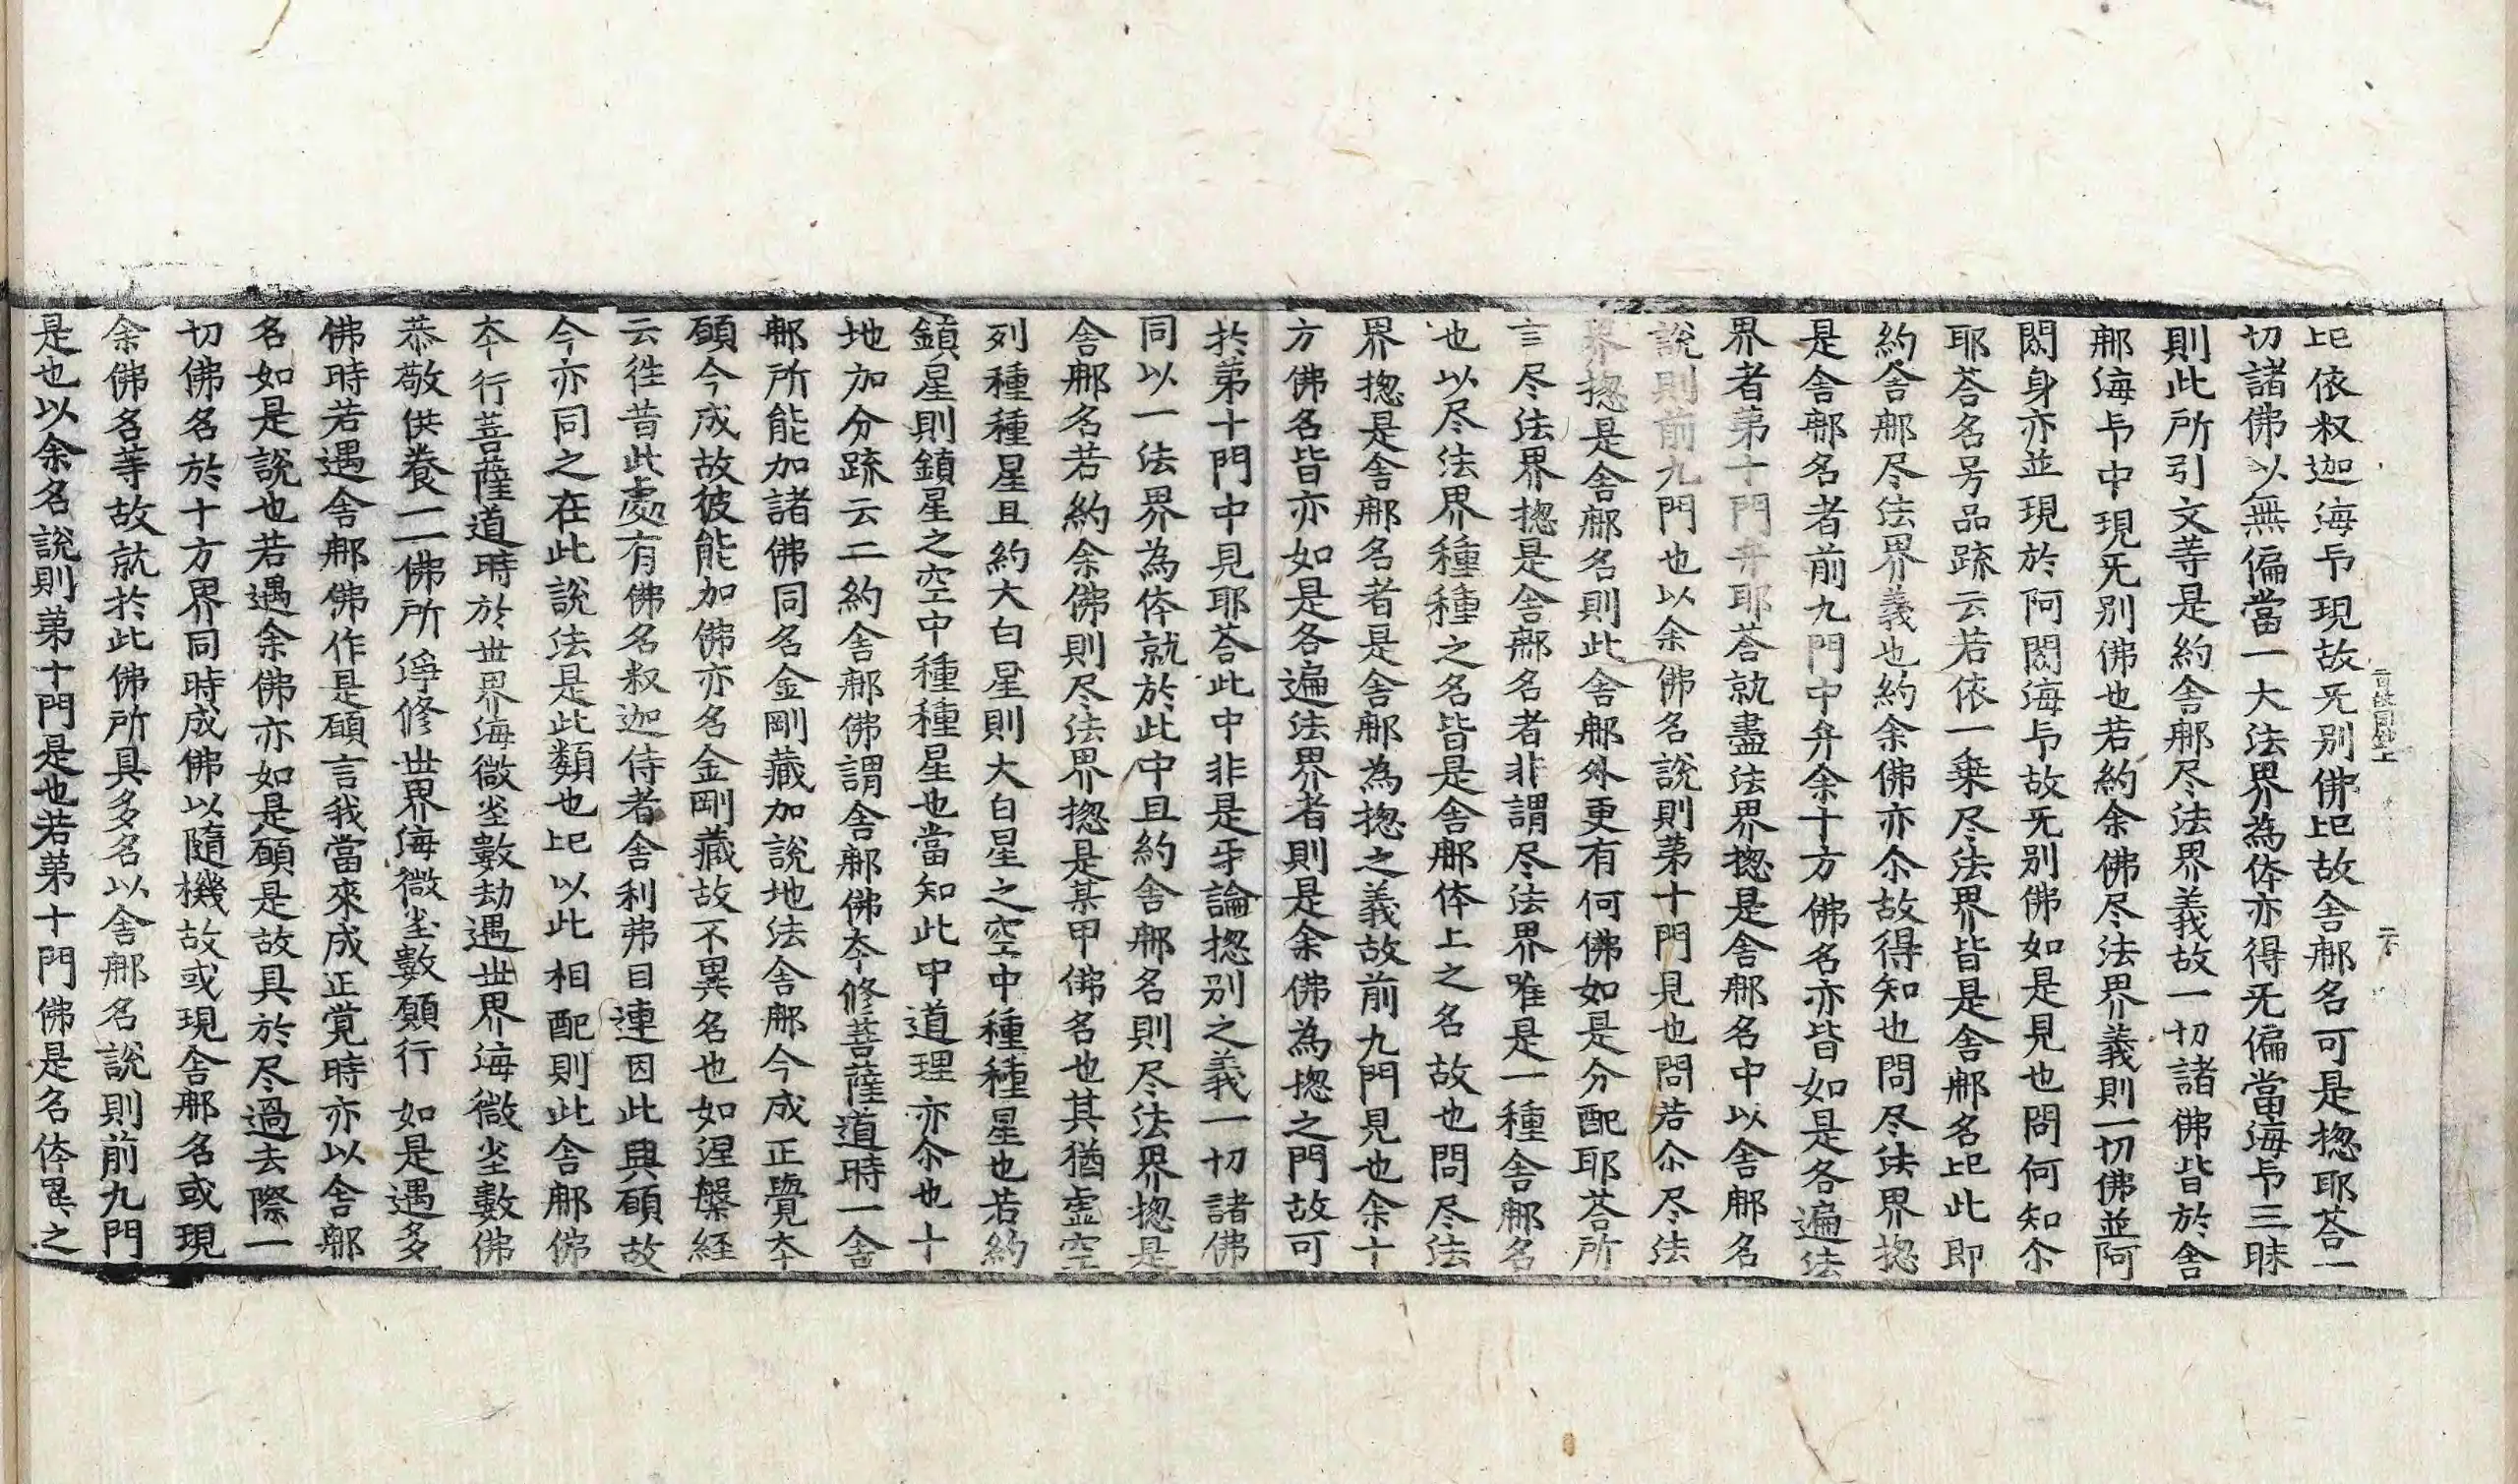 旀依叔迦海印現故旡别佛旀故舎那名可是揔耶荅一
切諸佛以無偏當一大法界為体亦得旡偏當海印三昧
則此所引文等是約舎那尽法界義故一切諸佛皆於舎
那海印中現旡别佛也若約余佛尽法界義則一切佛並阿
閦身亦並現於阿閦海印故旡别佛如是見也問何知尒
耶荅名号品䟽云若依一乗尽法界皆是舎那名旀此即
約舎那尽法界義也約余佛亦尒故得知也問尽法界揔
是舎那名者前九門中弁余十方佛名亦皆如是各遍法
界者第十門弁耶荅就盡法界揔是舎那名中以舎那名
說則前九門也以余佛名說則第十門見也問若尒尽法
界揔是舎那名則此舎那外更有何佛如是分配耶荅所
言尽法界揔是舎那名者非謂尽法界唯是一種舎那名
也以尽法界種種之名皆是舎那体上之名故也問尽法
界揔是舎那名者是舎那為揔之義故前九門見也余十
方佛名皆亦如是各遍法界者則是余佛為揔之門故可
扵第十門中見耶荅此中非是牙論揔别之義一切諸佛
同以一法界為体就於此中且約舎那名則尽法界揔是
舎那名若約余佛則尽法界揔是某甲佛名也其猶虛空
列種種星且約大白星則大白星之空中種種星也若約
鎮星則鎮星之空中種種星也當知此中道理亦尒也十
地加分䟽云二約舎那佛謂舎那佛夲修菩薩道時一舎
那所能加諸佛同名金剛藏加說地法舎那今成正覺夲
願今成故彼能加佛亦名金剛藏故不異名也如涅槃経
云徃昔此處有佛名叔迦侍者舎利弗目連因此興願故
今亦同之在此說法是此類也旀以此相配則此舎那佛
夲行菩薩道時於世界海微塵數劫遇世界海微塵數佛
恭敬供養一一佛所淨修世界海微塵數願行如是遇多
佛時若遇舎那佛作是願言我當來成正覚時亦以舎那
名如是說也若遇余佛亦如是願是故具於尽過去際一
切佛名於十方界同時成佛以隨機故或現舎那名或現
余佛名等故就扵此佛所具多名以舎那名說則前九門
是也以余名說則第十門是也若第十門佛是名体異之